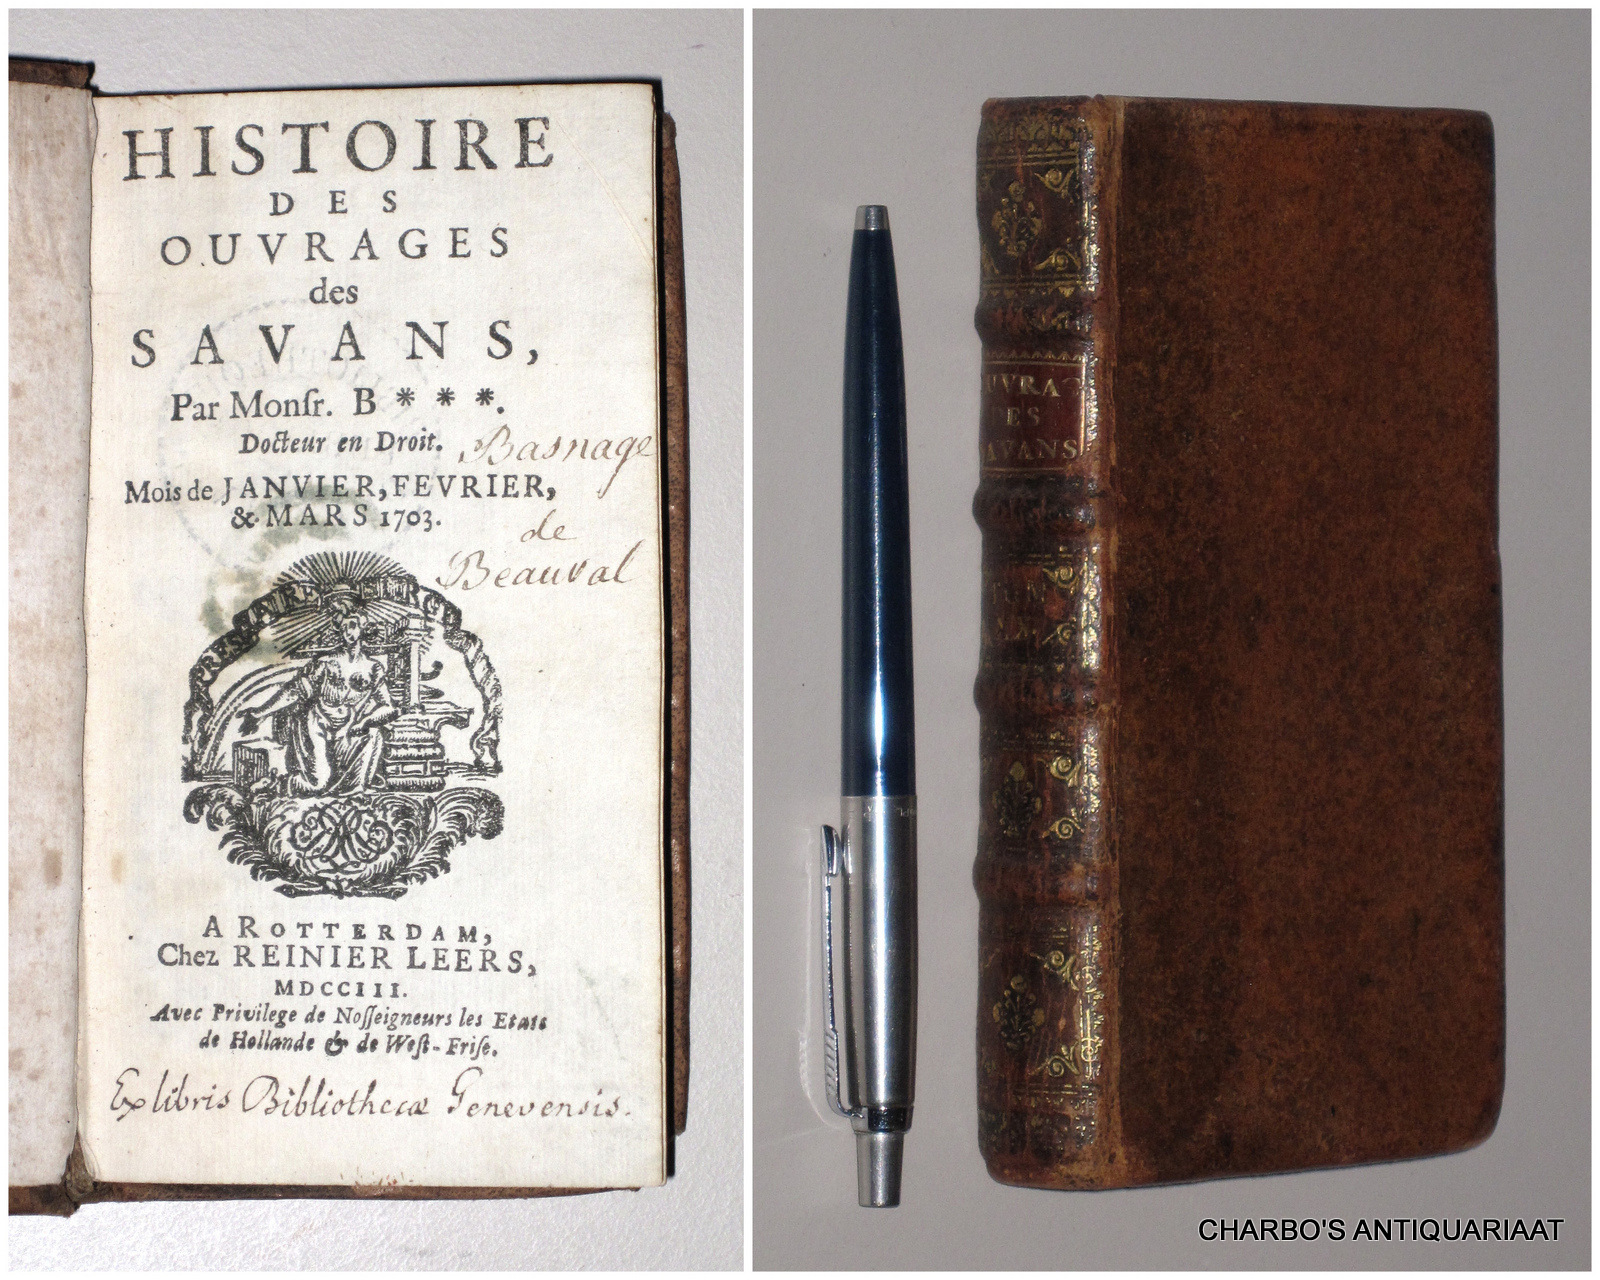 HISTOIRE
DES
OUVRAGES
des
SAVANS,
Par Monſr. B * * *.
Docteur en Droit. Basnage
Mois de JANVIER, FEVRIER,
& MARS 1703.
de
Beauval
A ROTTERDAM,
Chez REINIER LEERS,
MDCCIII.
Avec Privilege de Noſſeigneurs les Etats
de Hollande & de Weſt-Friſe.
Ex libris Bibliothecæ Genevensis.
UVRA
DES
AVANS
CHARBO'S ANTIQUARIAAT